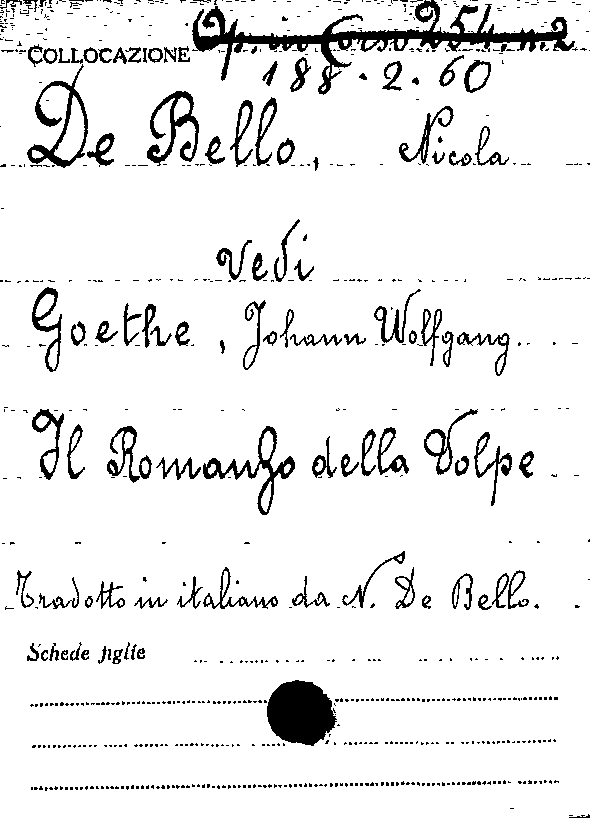 COLLOCAZIONE Op. in Corso 254. n.2
188.2.60
De Bello, Nicola
vedi
Goethe, Johann Wolfgang.
Il Romanzo della Volpe
Tradotto in italiano da N. De Bello.
Schede figlie